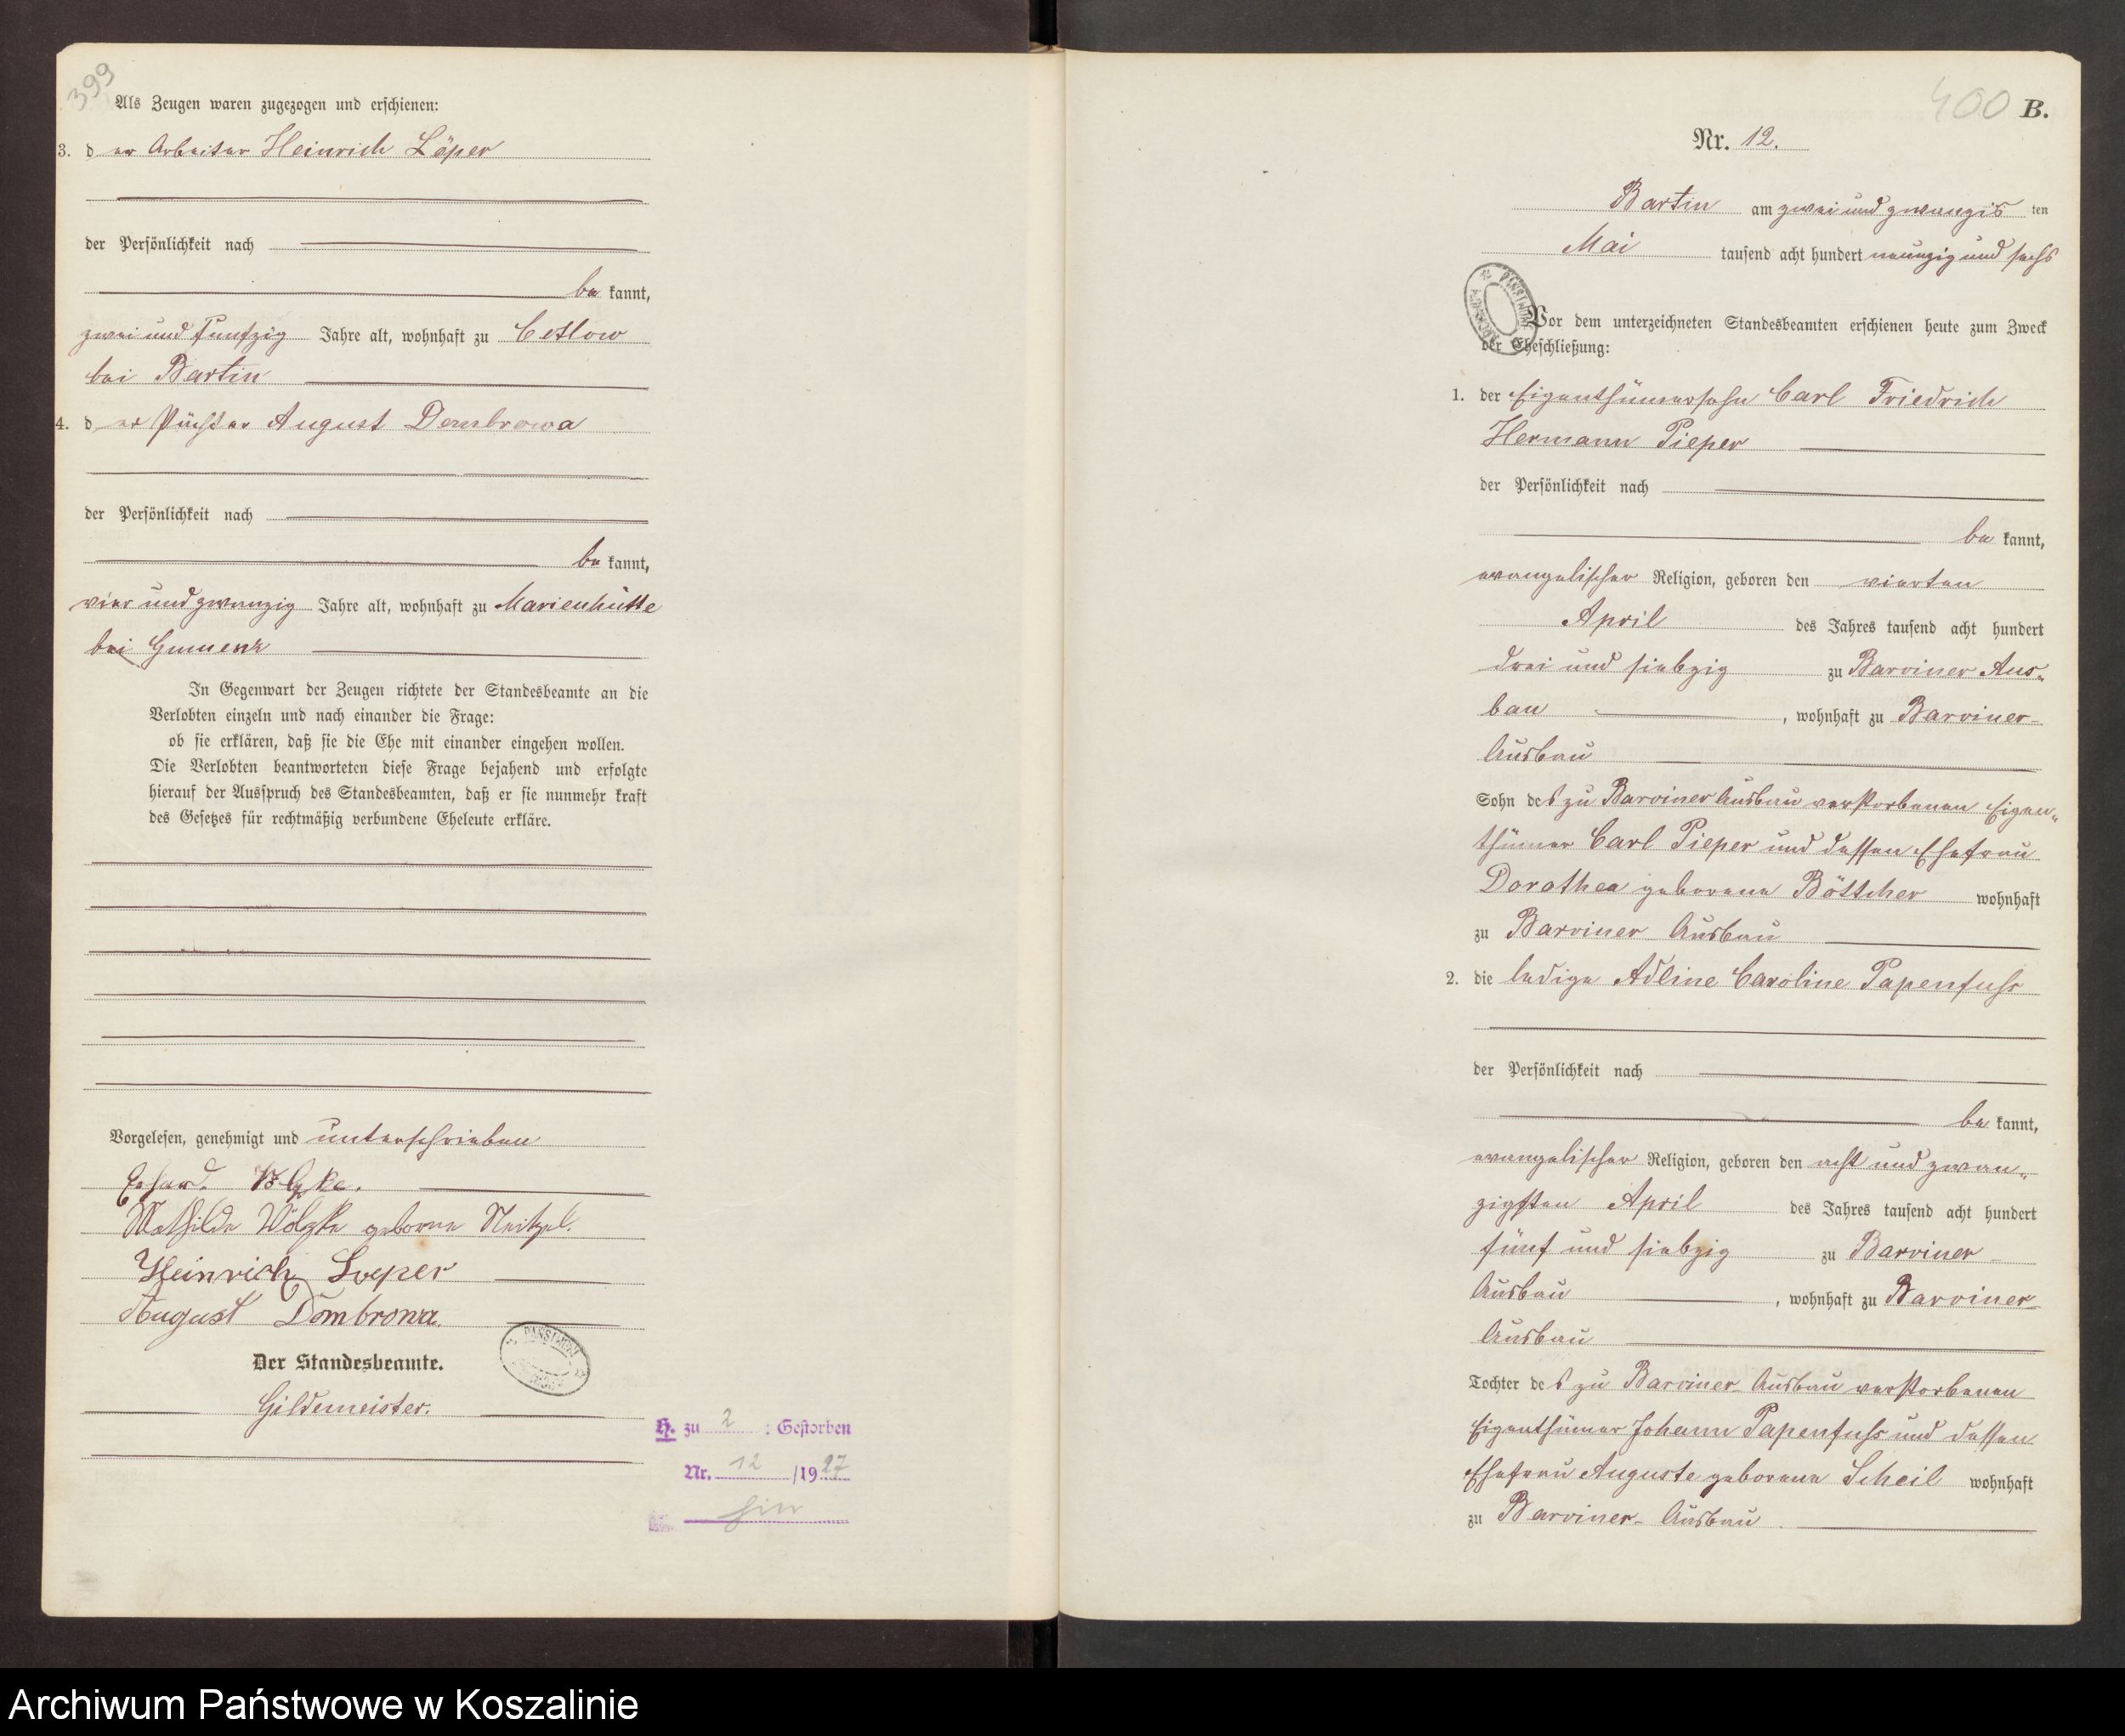 399
Als Zeugen waren zugezogen und erschienen:
3. der Arbeiter Heinrich Löper
der Persönlichkeit nach
bekannt,
zwei und funfzig Jahre alt, wohnhaft zu Cetlow
bei Bartin
4. der August Dembrowa
der Persönlichkeit nach
bekannt,
vier und zwanzig Jahre alt, wohnhaft zu Marienhütte
bei Gumenz
In Gegenwart der Zeugen richtete der Standesbeamte an die
Verlobten einzeln und nach einander die Frage:
ob sie erklären, daß sie die Ehe mit einander eingehen wollen.
Die Verlobten beantworteten diese Frage bejahend und erfolgte
hierauf der Ausspruch des Standesbeamten, daß er sie nunmehr kraft
des Gesetzes für rechtmäßig verbundene Eheleute erkläre.
Vorgelesen, genehmigt und unterschrieben
Mathilde Wölzke geborne Neitzel.
Heinrich Loeper
August Dombrowa.
Der Standesbeamte.
Gildemeister.
H. zu 2 : Gestorben
Nr. 12 /1927
400 B.
Nr. 12.
Bartin am zwei und zwanzigsten
Mai tausend acht hundert neunzig und sechs
Vor dem unterzeichneten Standesbeamten erschienen heute zum Zweck
der Eheschließung:
1. der Eigenthümersohn Carl Friedrich
Hermann Pieper
der Persönlichkeit nach
bekannt,
evangelischer Religion, geboren den vierten
April des Jahres tausend acht hundert
drei und siebzig zu Barviner Aus-
bau, wohnhaft zu Barviner-
Ausbau
Sohn des zu Barviner Ausbau verstorbenen Eigen-
thümer Carl Pieper und dessen Ehefrau
Dorothea geborene Böttcher wohnhaft
zu Barviner Ausbau
2. die ledige Adline Caroline Papenfuhs
der Persönlichkeit nach
bekannt,
evangelischer Religion, geboren den acht und zwan-
zigsten April des Jahres tausend acht hundert
fünf und siebzig zu Barviner
Ausbau, wohnhaft zu Barviner-
Ausbau
Tochter des zu Barviner-Ausbau verstorbenen
Eigenthümer Johann Papenfuhs und dessen
Ehefrau Auguste geborene Scheil wohnhaft
zu Barviner-Ausbau
Archiwum Państwowe w Koszalinie